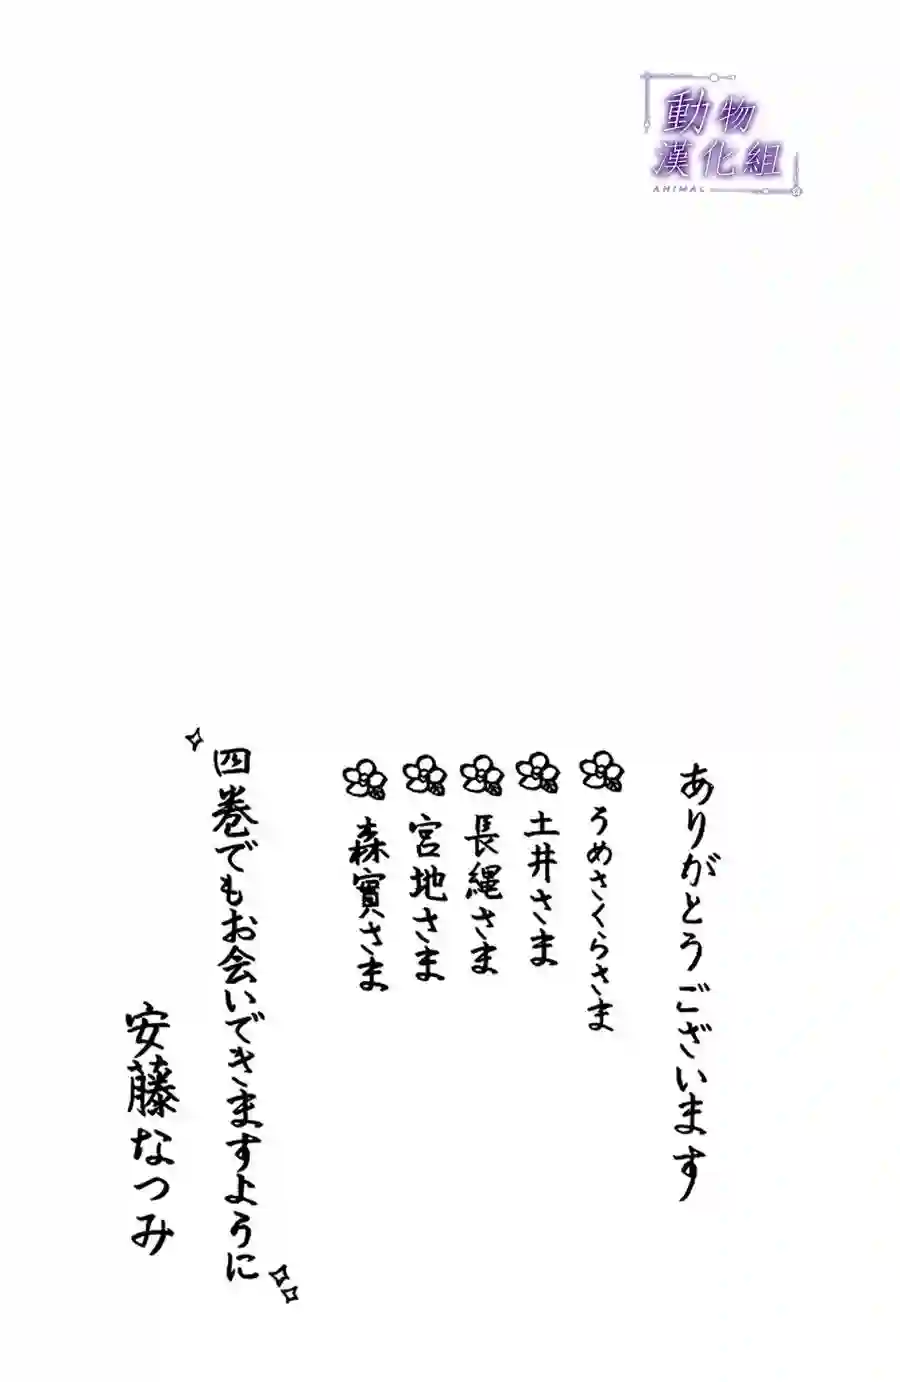 動物
漢化組
ANIMAL
ありがとうございます
うめさくらさま
土井さま
長縄さま
宮地さま
森實さま
四巻でもお会いできますように
安藤なつみ